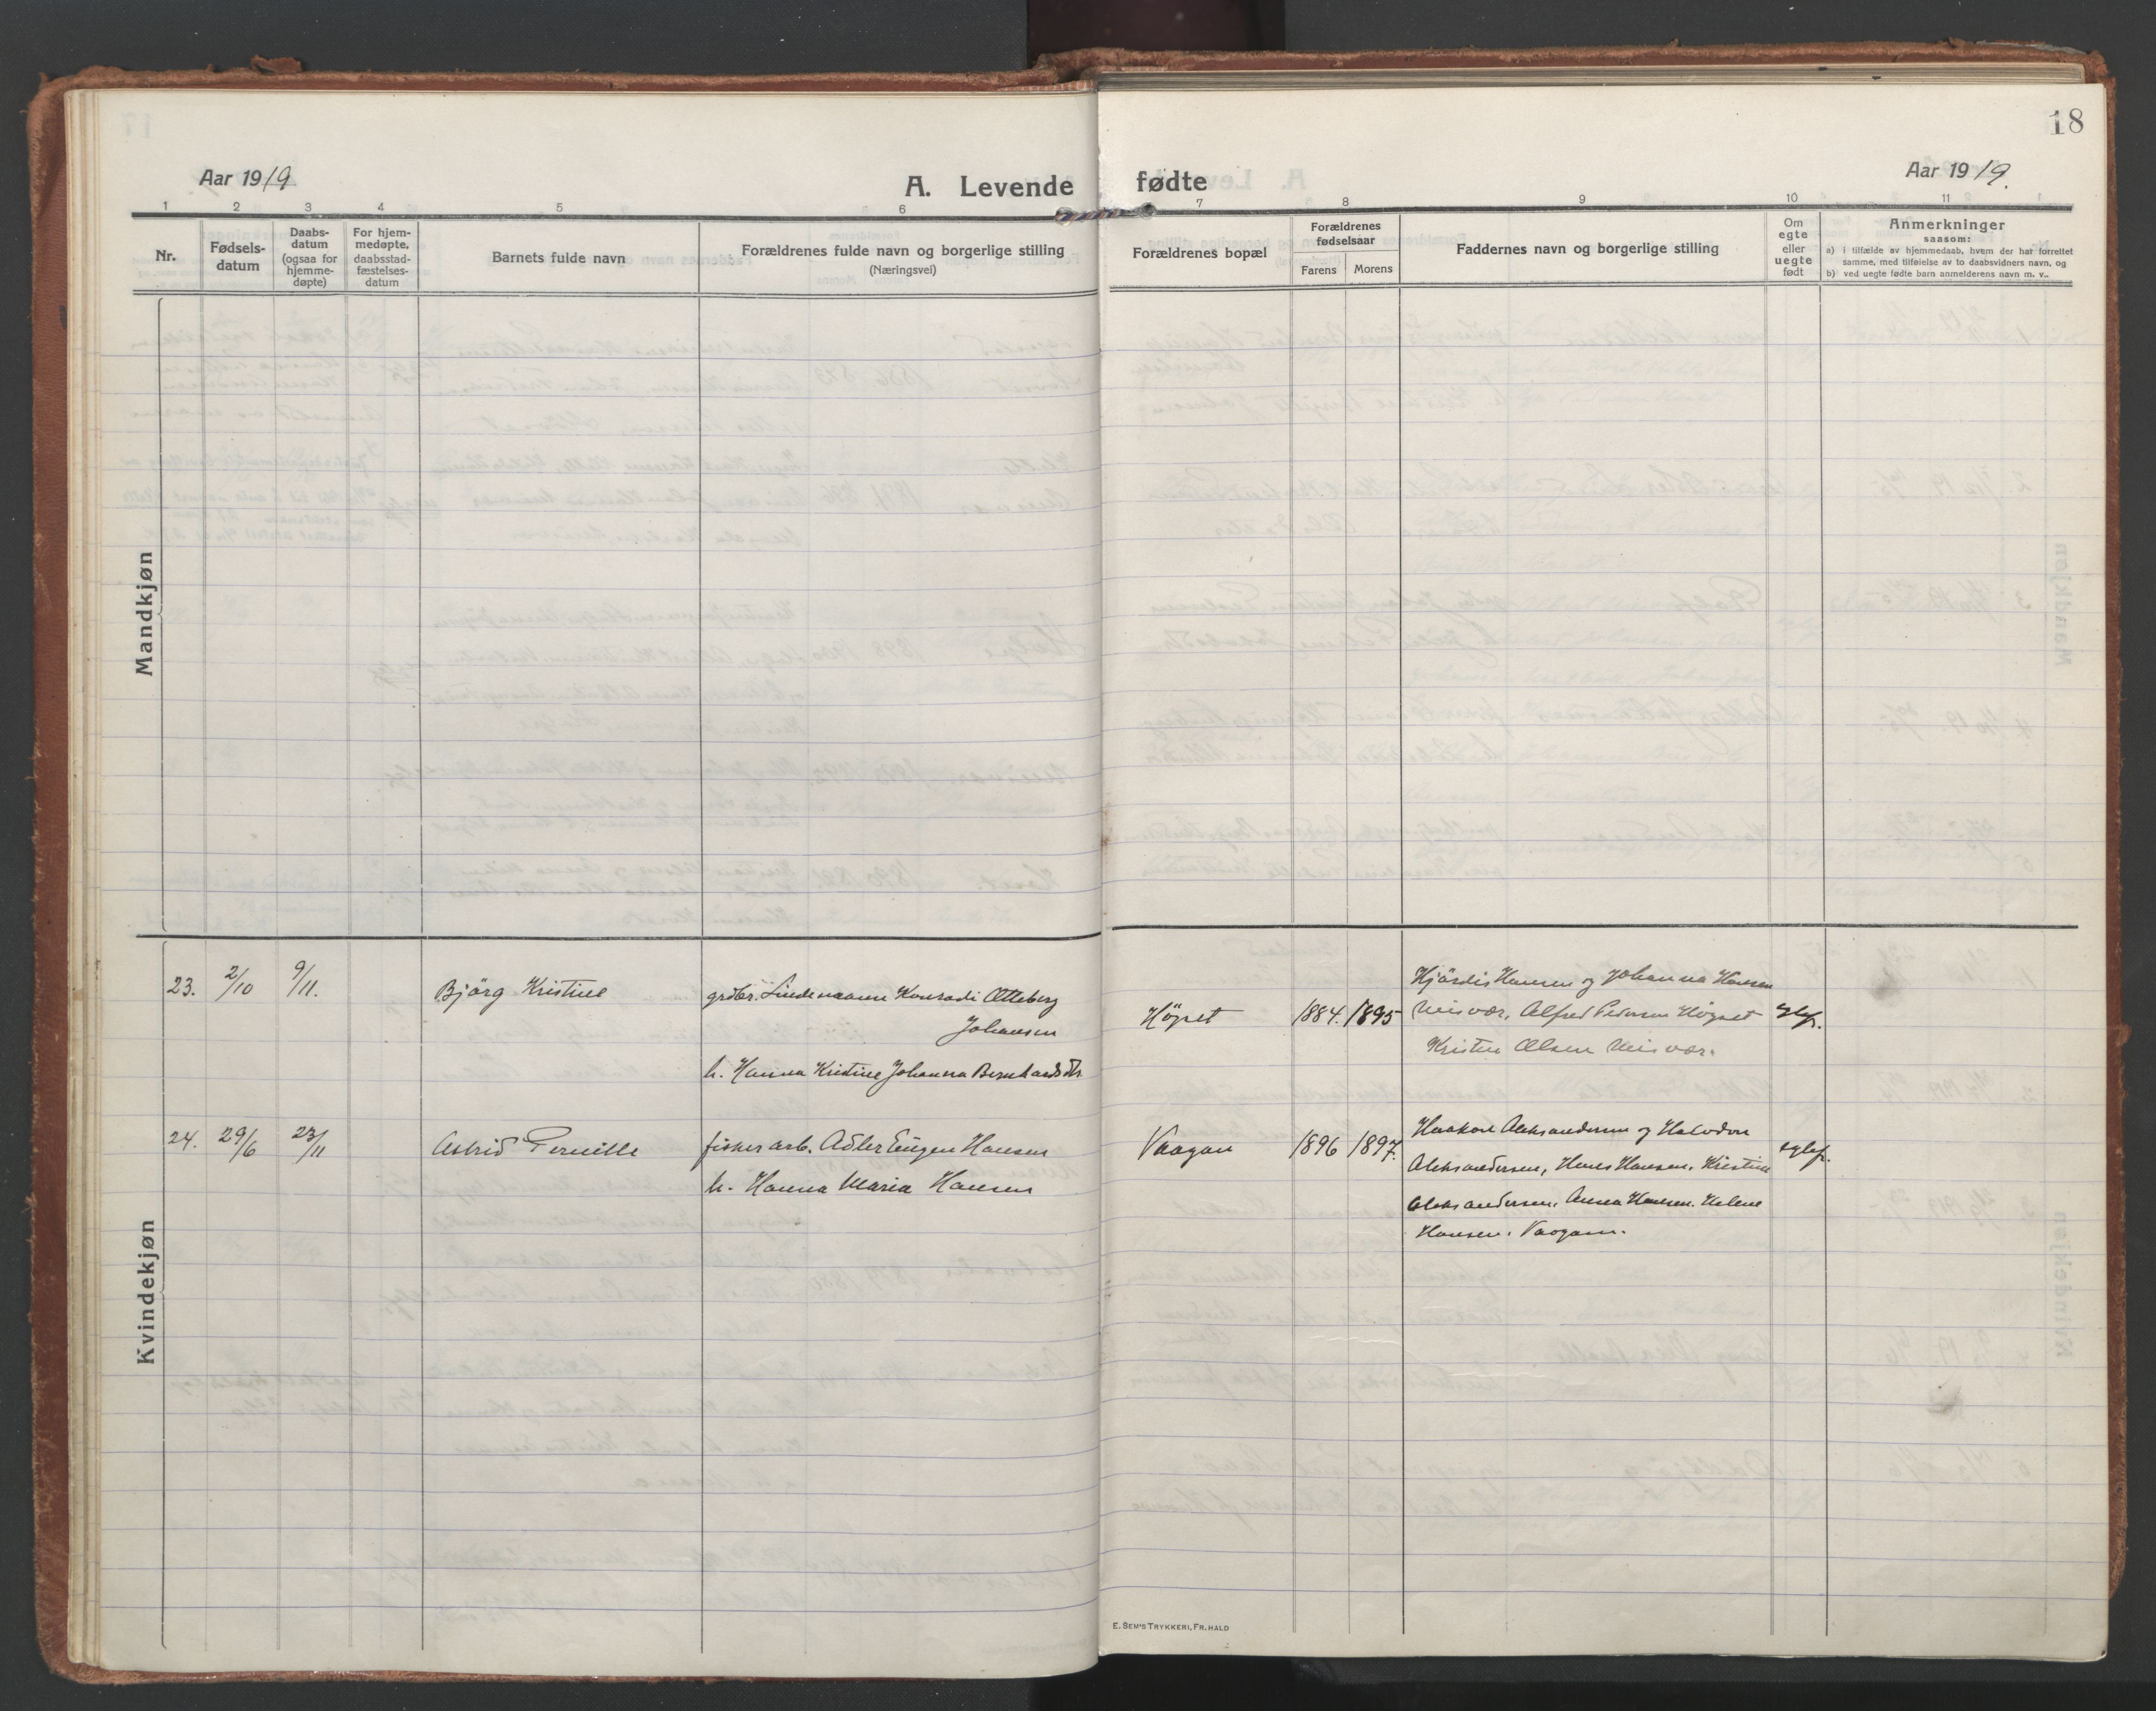 18
Aar 1919
A. Levende
fødte
Aar 1919.
1 2 3 4 5 6 7 8 9 10 11
Nr.
Fødsels-
datum
Daabs-
datum
(ogsaa for
hjemme-
døpte)
For hjem-
medøpte,
daabsstad-
fæstelses-
datum
Barnets fulde navn
Forældrenes fulde navn og borgerlige stilling
(Næringsvei)
Forældrenes bopæl
Forældrenes
fødselsaar
Farens Morens
Faddernes navn og borgerlige stilling
Om
egte
eller
uegte
født
Anmerkninger
saasom:
a) i tilfælde av hjemmedaab, hvem der har forrettet
samme, med tilføielse av to daabsvidners navn, og
b) ved uegte fødte barn anmelderens navn m. v..
Mandkjøn
Kvindekjøn
23. 2/10 9/11. Bjärg Kristine
grdbr. Lindemann Konradi Otteberg
Johansen
h. Hanna Kristine Johanna Bernhardsdtr
Högset 1884. 1895
Hjärdis Hansen og Johanna Hansen
Meisvær, Alfred Pedersen Högset
Kristen Olsen Meisvær.
egtef.
24. 29/6 23/11 Astrid Pernille
fisker arb. Adler Eugen Hansen
h. Hanna Maria Hansen
Vaagan 1896 1897.
Haakon Aleksandersen og Halvdon
Aleksandersen, Hans Hansen, Kristine
Aleksandersen, Anna Hansen, Helene
Hansen, Vaagan.
egtef.
E. SEM'S TRYKKERI, FR. HALD